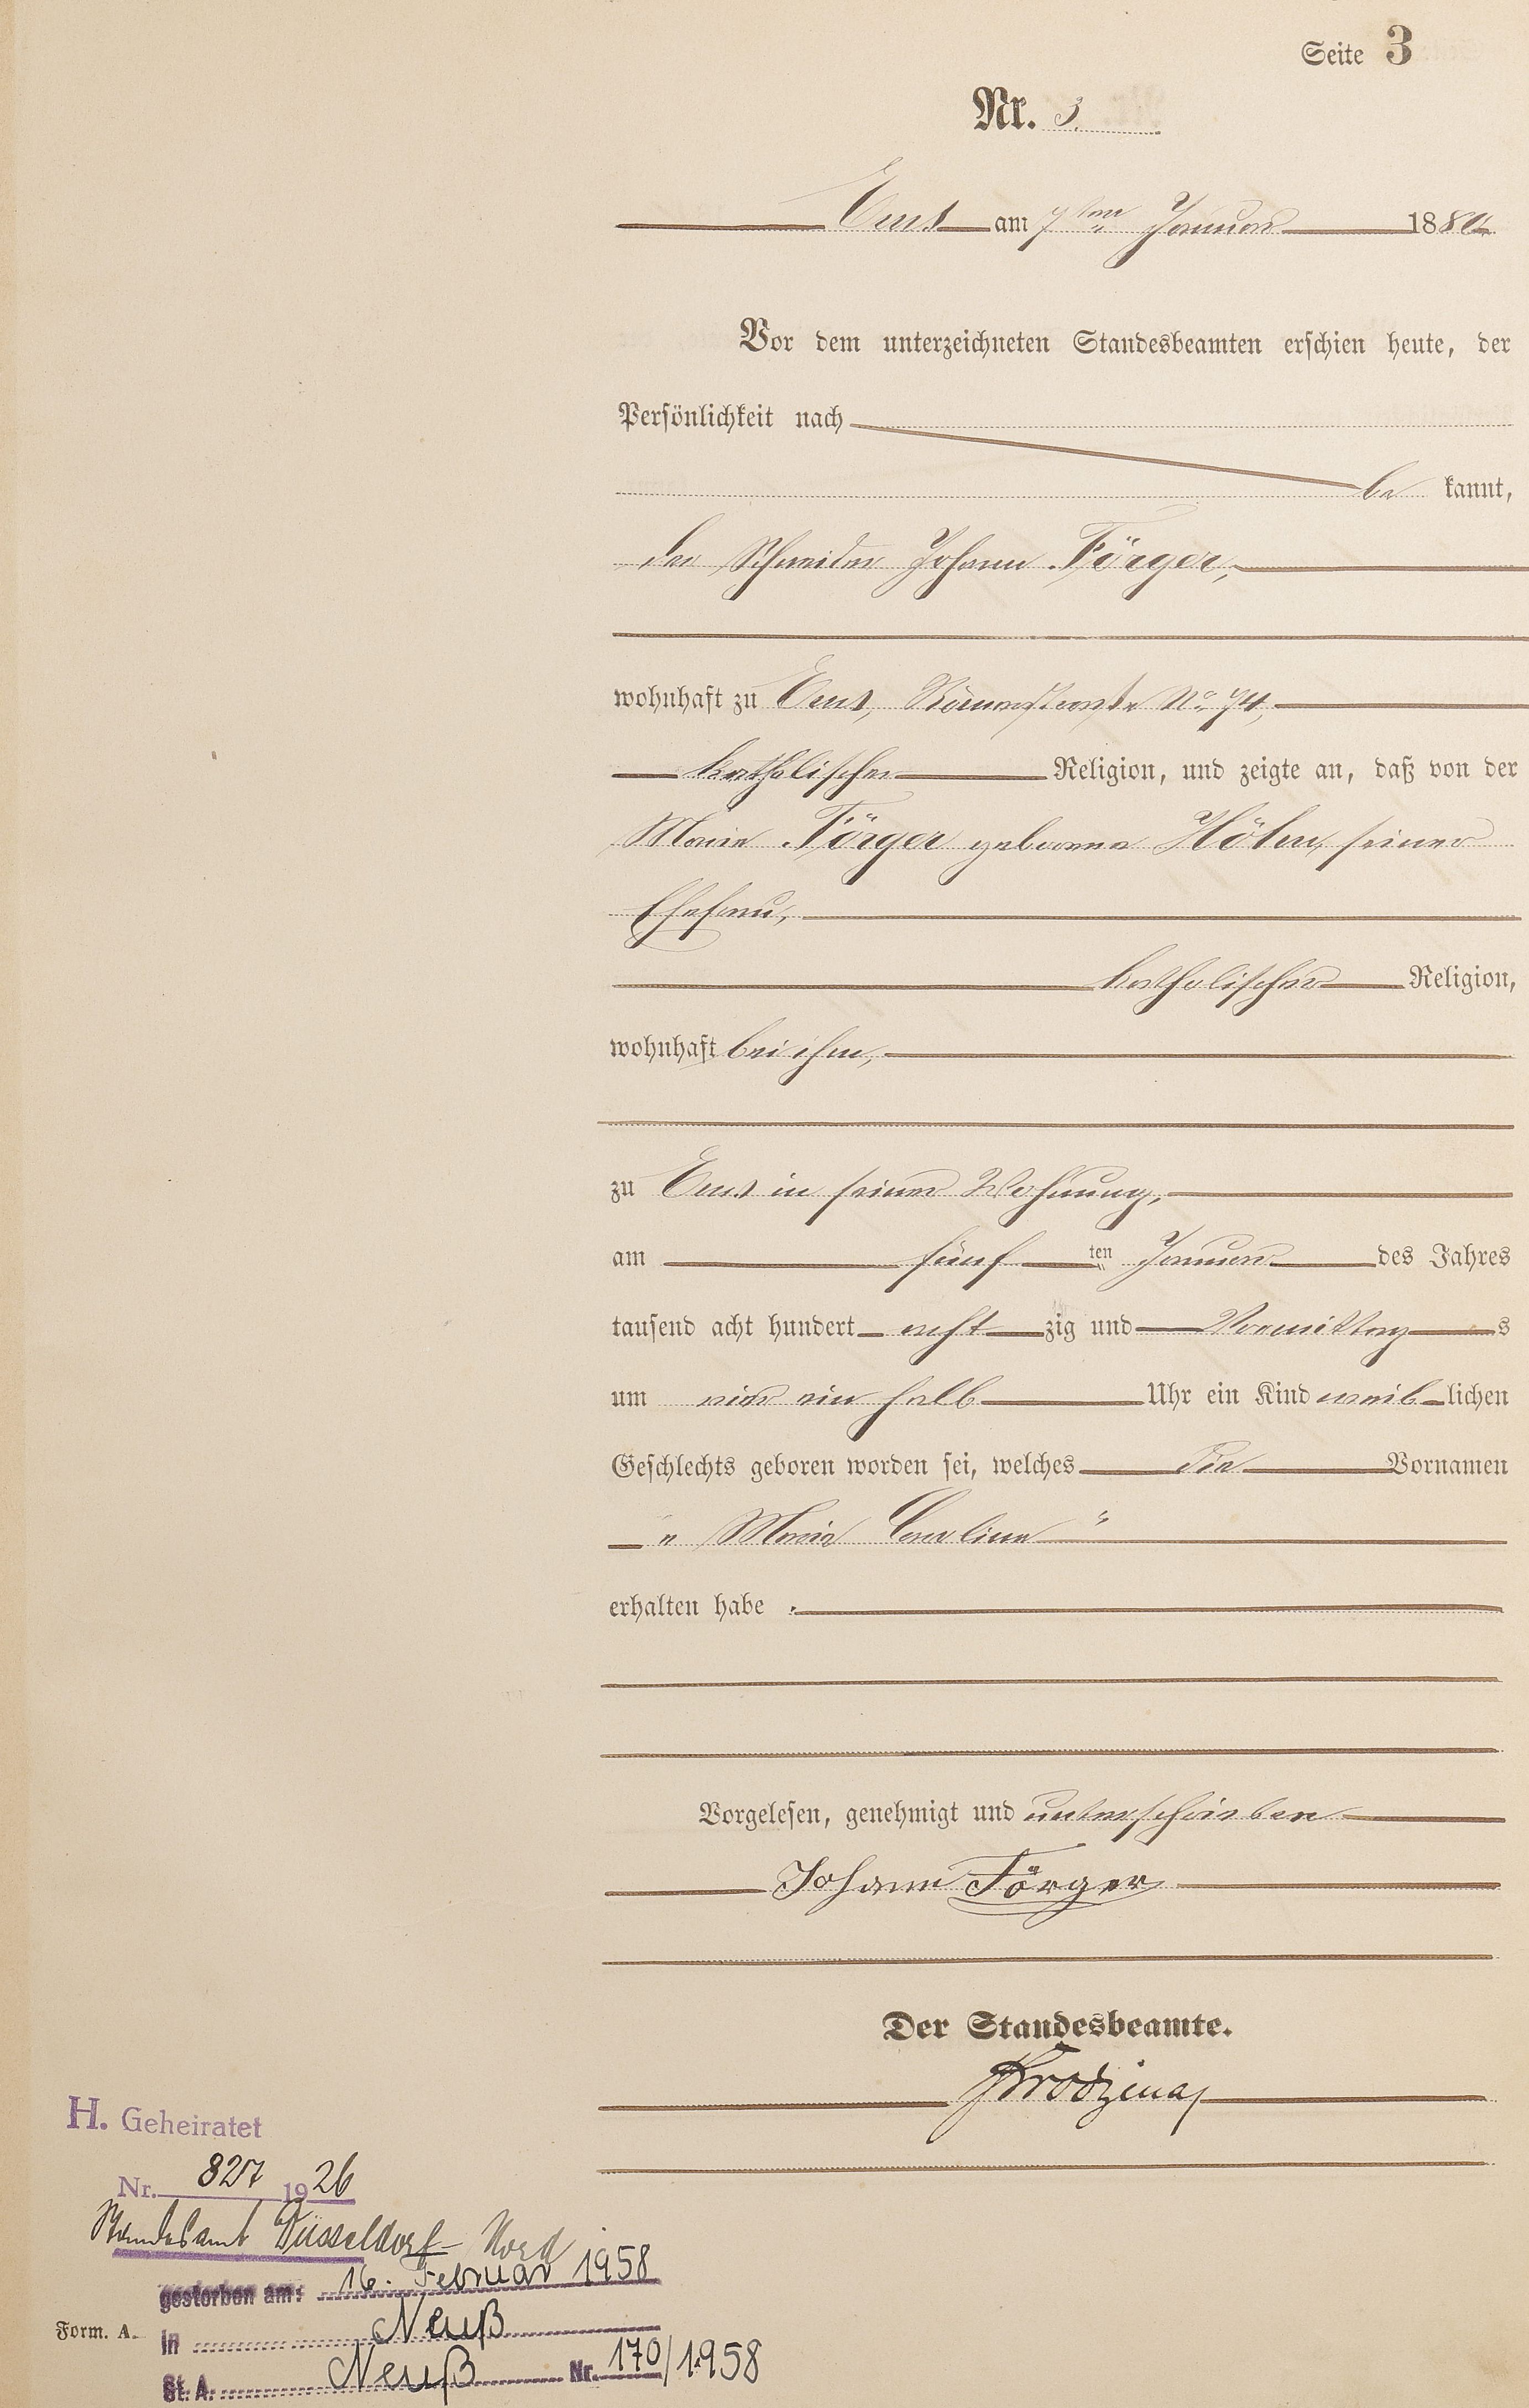 Seite 3
Nr. 3.
Ems am 7ten Januar 1880
Vor dem unterzeichneten Standesbeamten erschien heute, der
Persönlichkeit nach
be kannt,
der Schneider Johann Förger,
wohnhaft zu Ems, Römerstraße No. 74,
katholischer Religion, und zeigte an, daß von der
Maria Förger geborene Höhn, seiner
Ehefrau,
katholischer Religion,
wohnhaft bei ihm,
zu Ems in seiner Wohnung,
am fünf ten Januar des Jahres
tausend acht hundert acht zig und Vormittag s
um vier ein halb Uhr ein Kind weib lichen
Geschlechts geboren worden sei, welches die Vornamen
" Maria Carolina "
erhalten habe.
Vorgelesen, genehmigt und unterschrieben
Johann Förger
Der Standesbeamte.
H. Geheiratet
Nr. 827 1926
Standesamt Düsseldorf-Nord
gestorben am: 16. Februar 1958
Form. A.
in Neuß
St. A. Neuß Nr. 170/1958